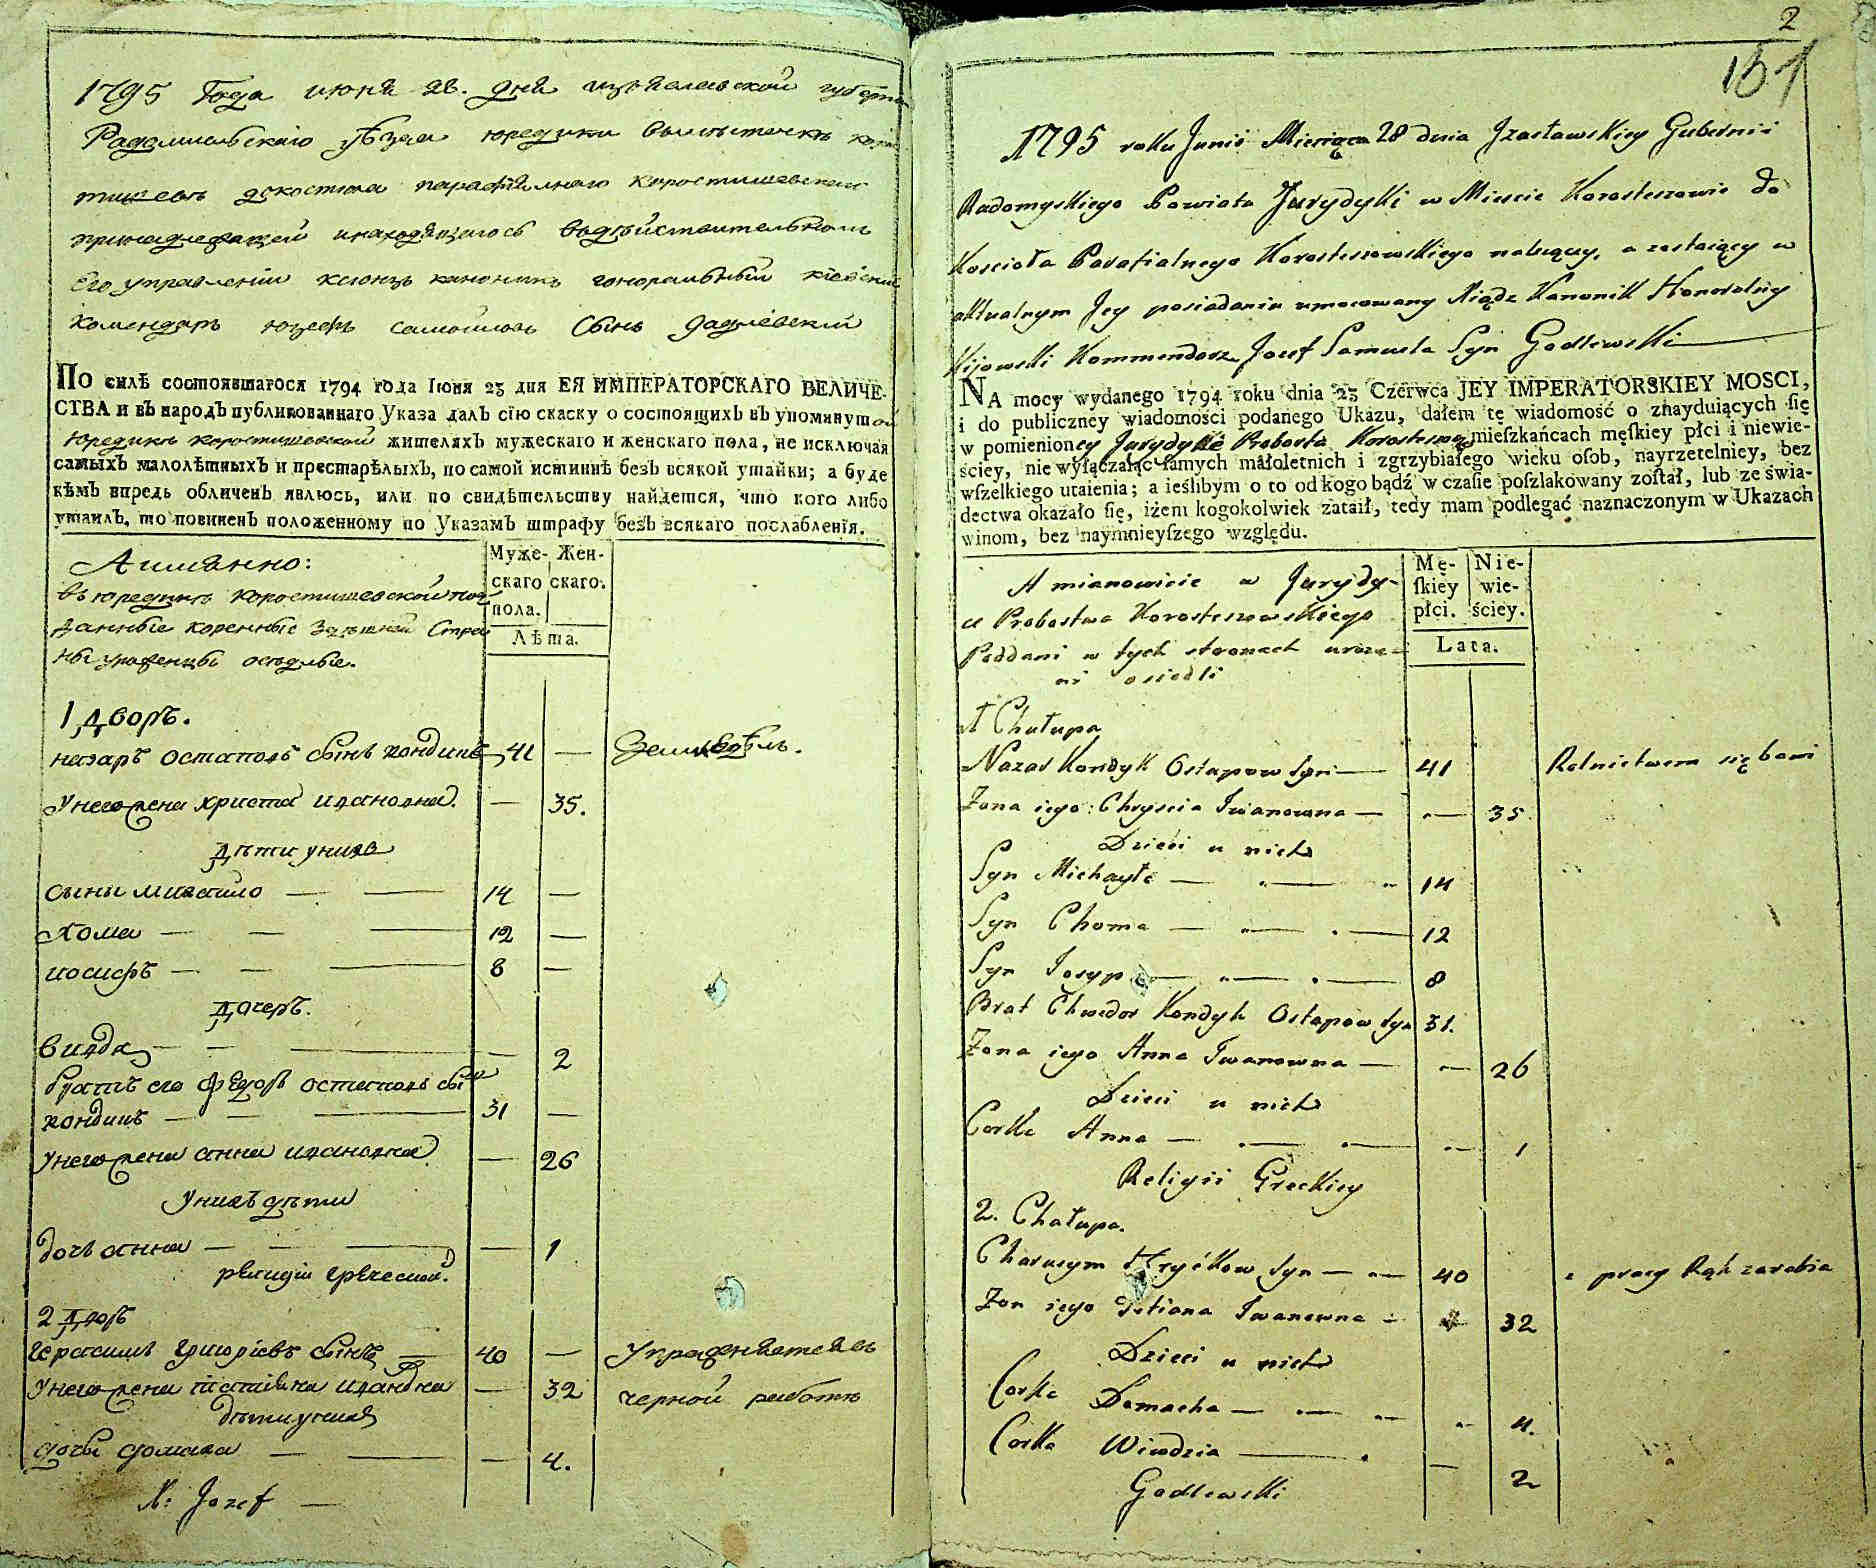 1795 Года июня 28. дня изяславской губерн
Радомысльскаго уѣзда юредики вместечкѣ коро
тишевѣ докостела парафiялнаго коростишевскаго
принадлежащей инаходящегося вдѣйствительномъ
его управленiи ксіонзъ каноникъ гоноральный кiевскiй
комендаръ юзефъ самойловъ Сынъ Годлевскiй
По силѣ состоявшагося 1794 года Iюня 23 дня ЕЯ ИМПЕРАТОРСКАГО ВЕЛИЧЕ-
СТВА и въ народъ публикованнаго Указа далъ сїю скаску о состоящихъ въ упомянутой
Юредикѣ коростишевской жителяхъ мужескаго и женскаго пола, не исключая
самыхъ малолѣтныхъ и престарѣлыхъ, по самой истиннѣ безъ всякой утайки; а буде
кѣмъ впредь обличенъ явлюсь, или по свидѣтельству найдется, что кого либо
утаилъ, то повиненъ положенному по Указамъ штрафу безъ всякаго послабленїя.
Аимянно:
въюредикѣ коростишевской под
данные коренные здѣшней Стра
ны уроженцы оседлые.
Муже-
скаго
пола.
Жен-
скаго.
Лѣта.
1 дворъ.
назаръ остаповъ сынъ кондикъ 41 — Земледѣль.
Унего жена христя ивановна. — 35.
дѣти унихъ
сыны михайло — — 14 —
хома — — 12 —
иосифъ — — 8 —
дочеръ.
вивдя — — — 2
братъ его федоръ остаповъ сынъ
кондикъ — — 31 —
Унего жена анна ивановна — 26
Унихъ дѣти
дочь анна — — — 1
религiи греческой.
2 дворъ
герасимъ григорiевъ сынъ — 40 — Упражняется въ
Унего жена татiяна ивановна — 32 черной работѣ
дѣти унихъ
дочь домаха — — — 4.
X: Jozef —
2
151
1795 roku Junii Miesiąca 28 dnia Jzasławskiey Gubernii
Radomyskiego Powiatu Jurydyki w Miescie Korosteszowie do
Kosciola Parafialnego Korosteszowskiego należący, a zostaiący w
aktualnym Jey posiadaniu umocowany Xiądz Kanonik Honoralny
Kijowski Kommendarz Jozef Samuela Syn Godlewski
NA mocy wydanego 1794 roku dnia 23 Czerwca JEY IMPERATORSKIEY MOSCI,
i do publiczney wiadomości podanego Ukazu, dałem tę wiadomość o znayduiących ſię
w pomienioney Jurydyce Probostwa Korosteszow mieſzkańcach męſkiey płci i niewie-
ściey, nie wyłączaiąc ſamych małoletnich i zgrzybiałego wieku oſob, nayrzetelniey, bez
wſzelkiego utaienia; a ieślibym o to od kogo bądź w czaſie poſzlakowany został, lub ze świa-
dectwa okazało ſię, iżem kogokolwiek zataił, tedy mam podlegać naznaczonym w Ukazach
winom, bez naymnieyſzego względu.
A mianowicie w Jurydy-
ce Probostwa Korosteszowskiego
Poddani w tych stronach urodze-
ni osiedli
Mę-
ſkiey
płci.
Nie-
wie-
ściey.
Lata.
1 Chałupa
Nazar Kondyk Ostapow syn — 41 Rolnictwem się bawi
Żona iego: Chryscia Iwanowna — — 35
Dzieci u nich
Syn Michayło — — 14
Syn Choma — — 12
Syn Josyp — — 8
Brat Chwedor Kondyk Ostapow syn 31.
Żona iego Anna Iwanowna — — 26
Dzieci u nich
Corka Anna — — — 1
Religii Greckiey
2. Chałupa.
Charasym Hryćkow syn — — 40 z pracy Rąk zarabia
Żon iego Tetiana Iwanowna — 32
Dzieci u nich
Corka Domacha — — — 4.
Corka Wiwdzia — — 2
Godlewski